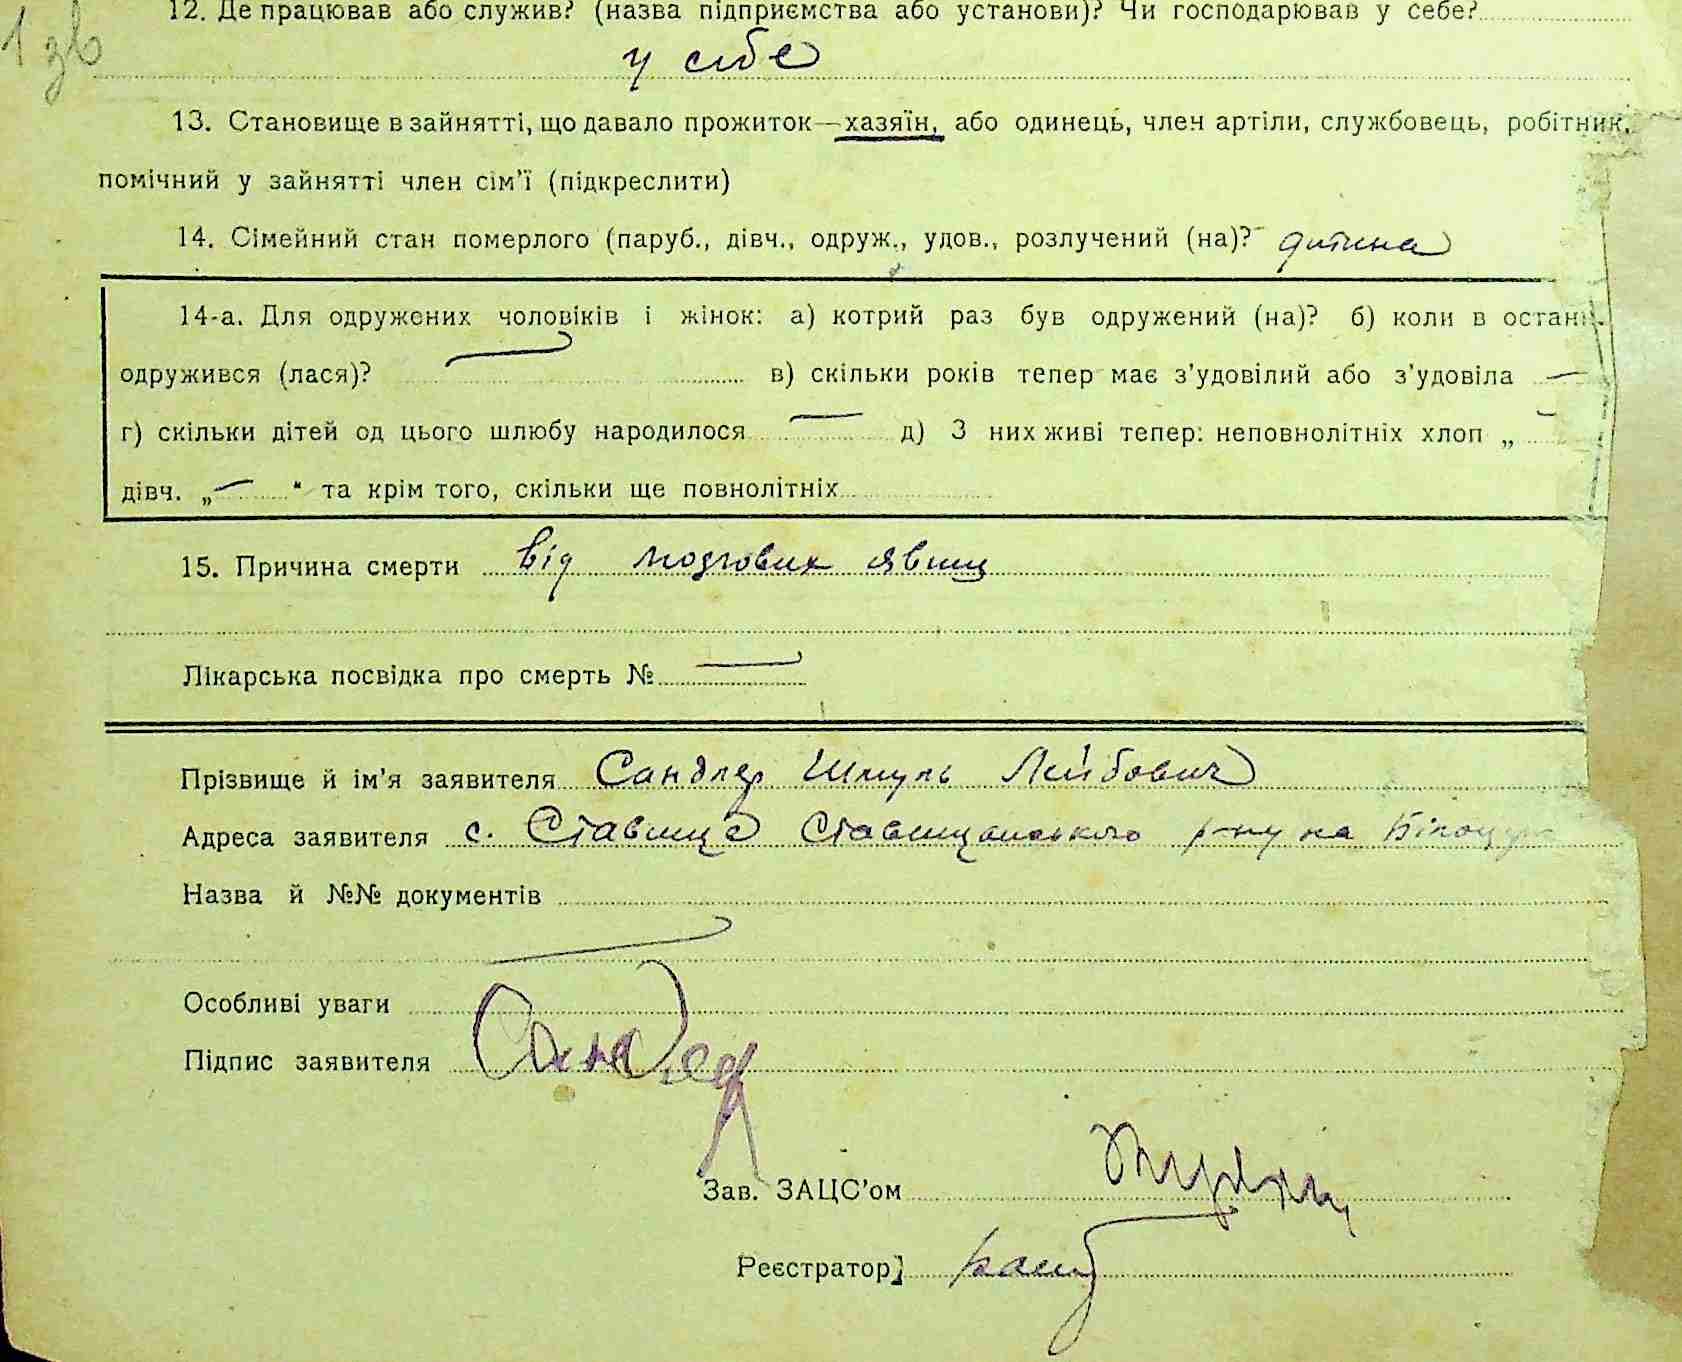 1 зв
12. Де працював або служив? (назва підприємства або установи)? Чи господарював у себе?
у сибе
13. Становище в зайнятті, що давало прожиток—хазяїн, або одинець, член артіли, службовець, робітник,
помічний у зайнятті член сім'ї (підкреслити)
14. Сімейний стан померлого (паруб., дівч., одруж., удов., розлучений (на)? дитина
14-а. Для одружених чоловіків і жінок: а) котрий раз був одружений (на)? б) коли в остан
одружився (лася)? — в) скільки років тепер має з'удовілий або з'удовіла —
г) скільки дітей од цього шлюбу народилося — д) З них живі тепер: неповнолітніх хлоп „ —
дівч. „—“ та крім того, скільки ще повнолітніх
15. Причина смерти від мозгових явищ
Лікарська посвідка про смерть № —
Прізвище й ім'я заявителя Сандлер Шмуль Лейбович
Адреса заявителя с. Ставище Ставищанського р-ну на Білоцер
Назва й №№ документів
—
Особливі уваги
Підпис заявителя Сандлер
Зав. ЗАЦС'ом
Реєстратор